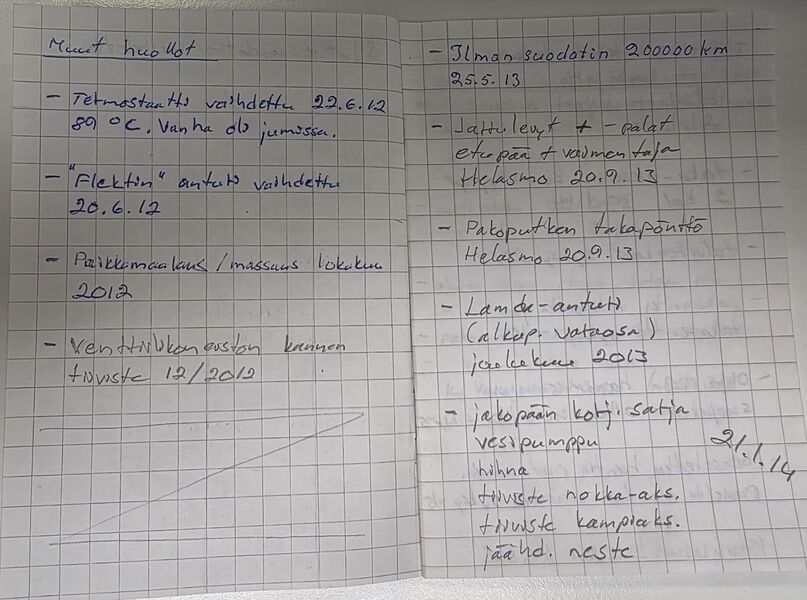 Muut huollot
- Termostaatti vaihdettu 22.6.12
89 °C. Vanha oli jumissa.
- "Flektin" anturi vaihdettu
20.6.12
- Paikkamaalaus / massaus lokakuu
2012
- Venttiilikoneiston kannen
tiiviste 12/2012
- Ilman suodatin 200000 km
25.5.13
- Jarrulevyt + -palat
etupää + vaimentaja
Helasmo 20.9.13
- Pakoputken takapönttö
Helasmo 20.9.13
- Lamda-anturi
(alkup. varaosa)
joulukuu 2013
- jakopään korj. sarja
vesipumppu
hihna
21.1.14
tiiviste nokka-aks.
tiiviste kampiaks.
jäähd. neste